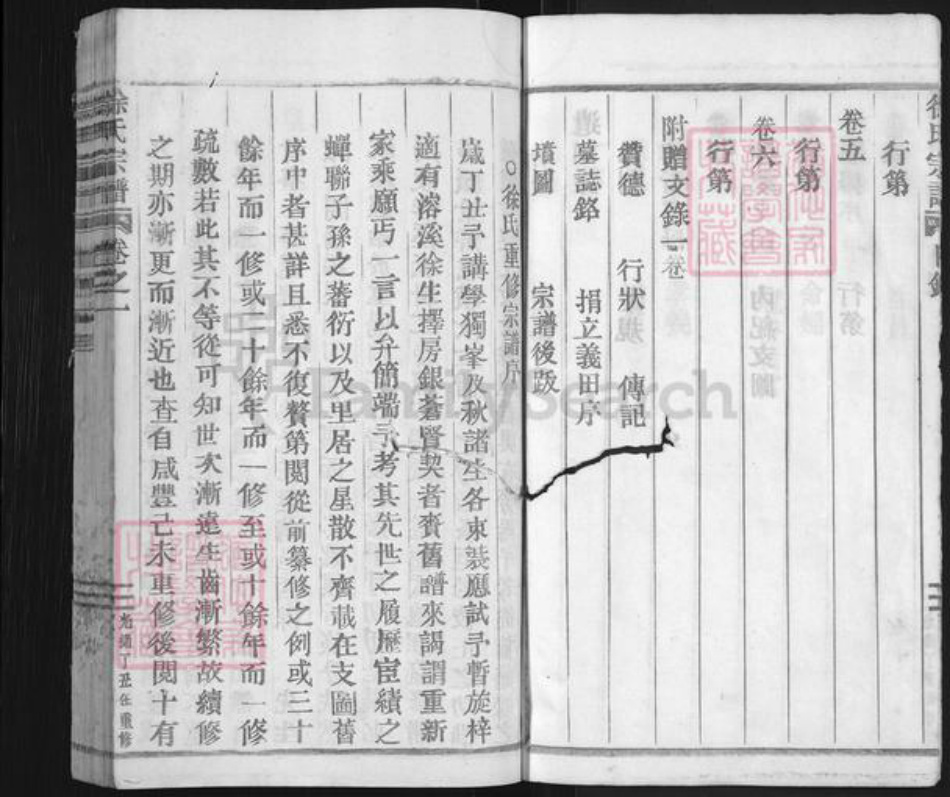 徐氏宗譜
目錄
行第
卷五
行第
行第
卷六
行第
附贈文錄一卷
贊德 行狀規 傳記
墓誌銘 捐立義田序
墳圖 宗譜後跋
○徐氏重修宗譜序
歲丁丑予講學獨峯及秋諸生各束裝應試予暫旋梓
適有溶溪徐生擇房銀蒼賢契者賚舊譜來謁謂重新
家乘願丐一言以弁簡端予考其先世之履歷宦績之
蟬聯子孫之蕃衍以及里居之星散不齊載在支圖舊
序中者甚詳且悉不復贅第閱從前纂修之例或三十
餘年而一修或二十餘年而一修至或十餘年而一修
疏數若此其不等從可知世次漸遠生齒漸繁故續修
之期亦漸更而漸近也查自咸豐己未重修後閱十有
徐氏宗譜
卷之一
光緒丁丑年重修
FamilySearch